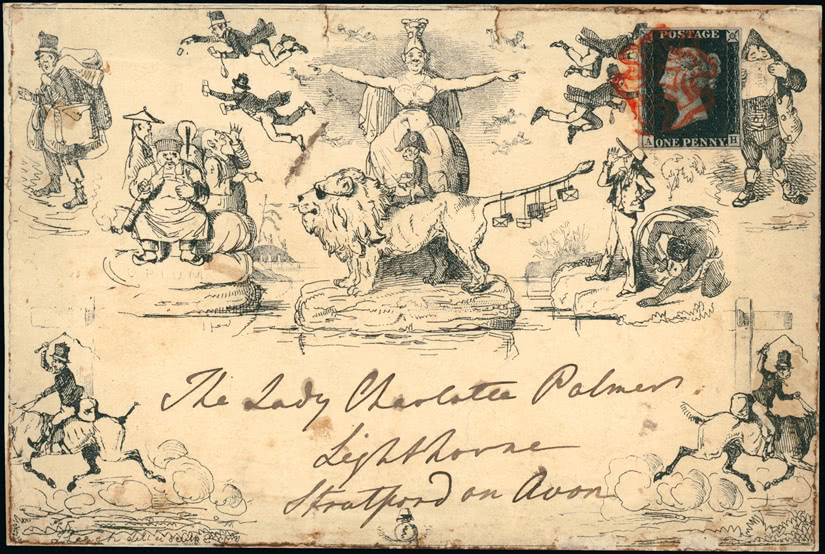 POSTAGE
A ONE PENNY H
OPIUM
The Lady Charlotte Palmer
Lighthorne
Stratford on Avon
Leech